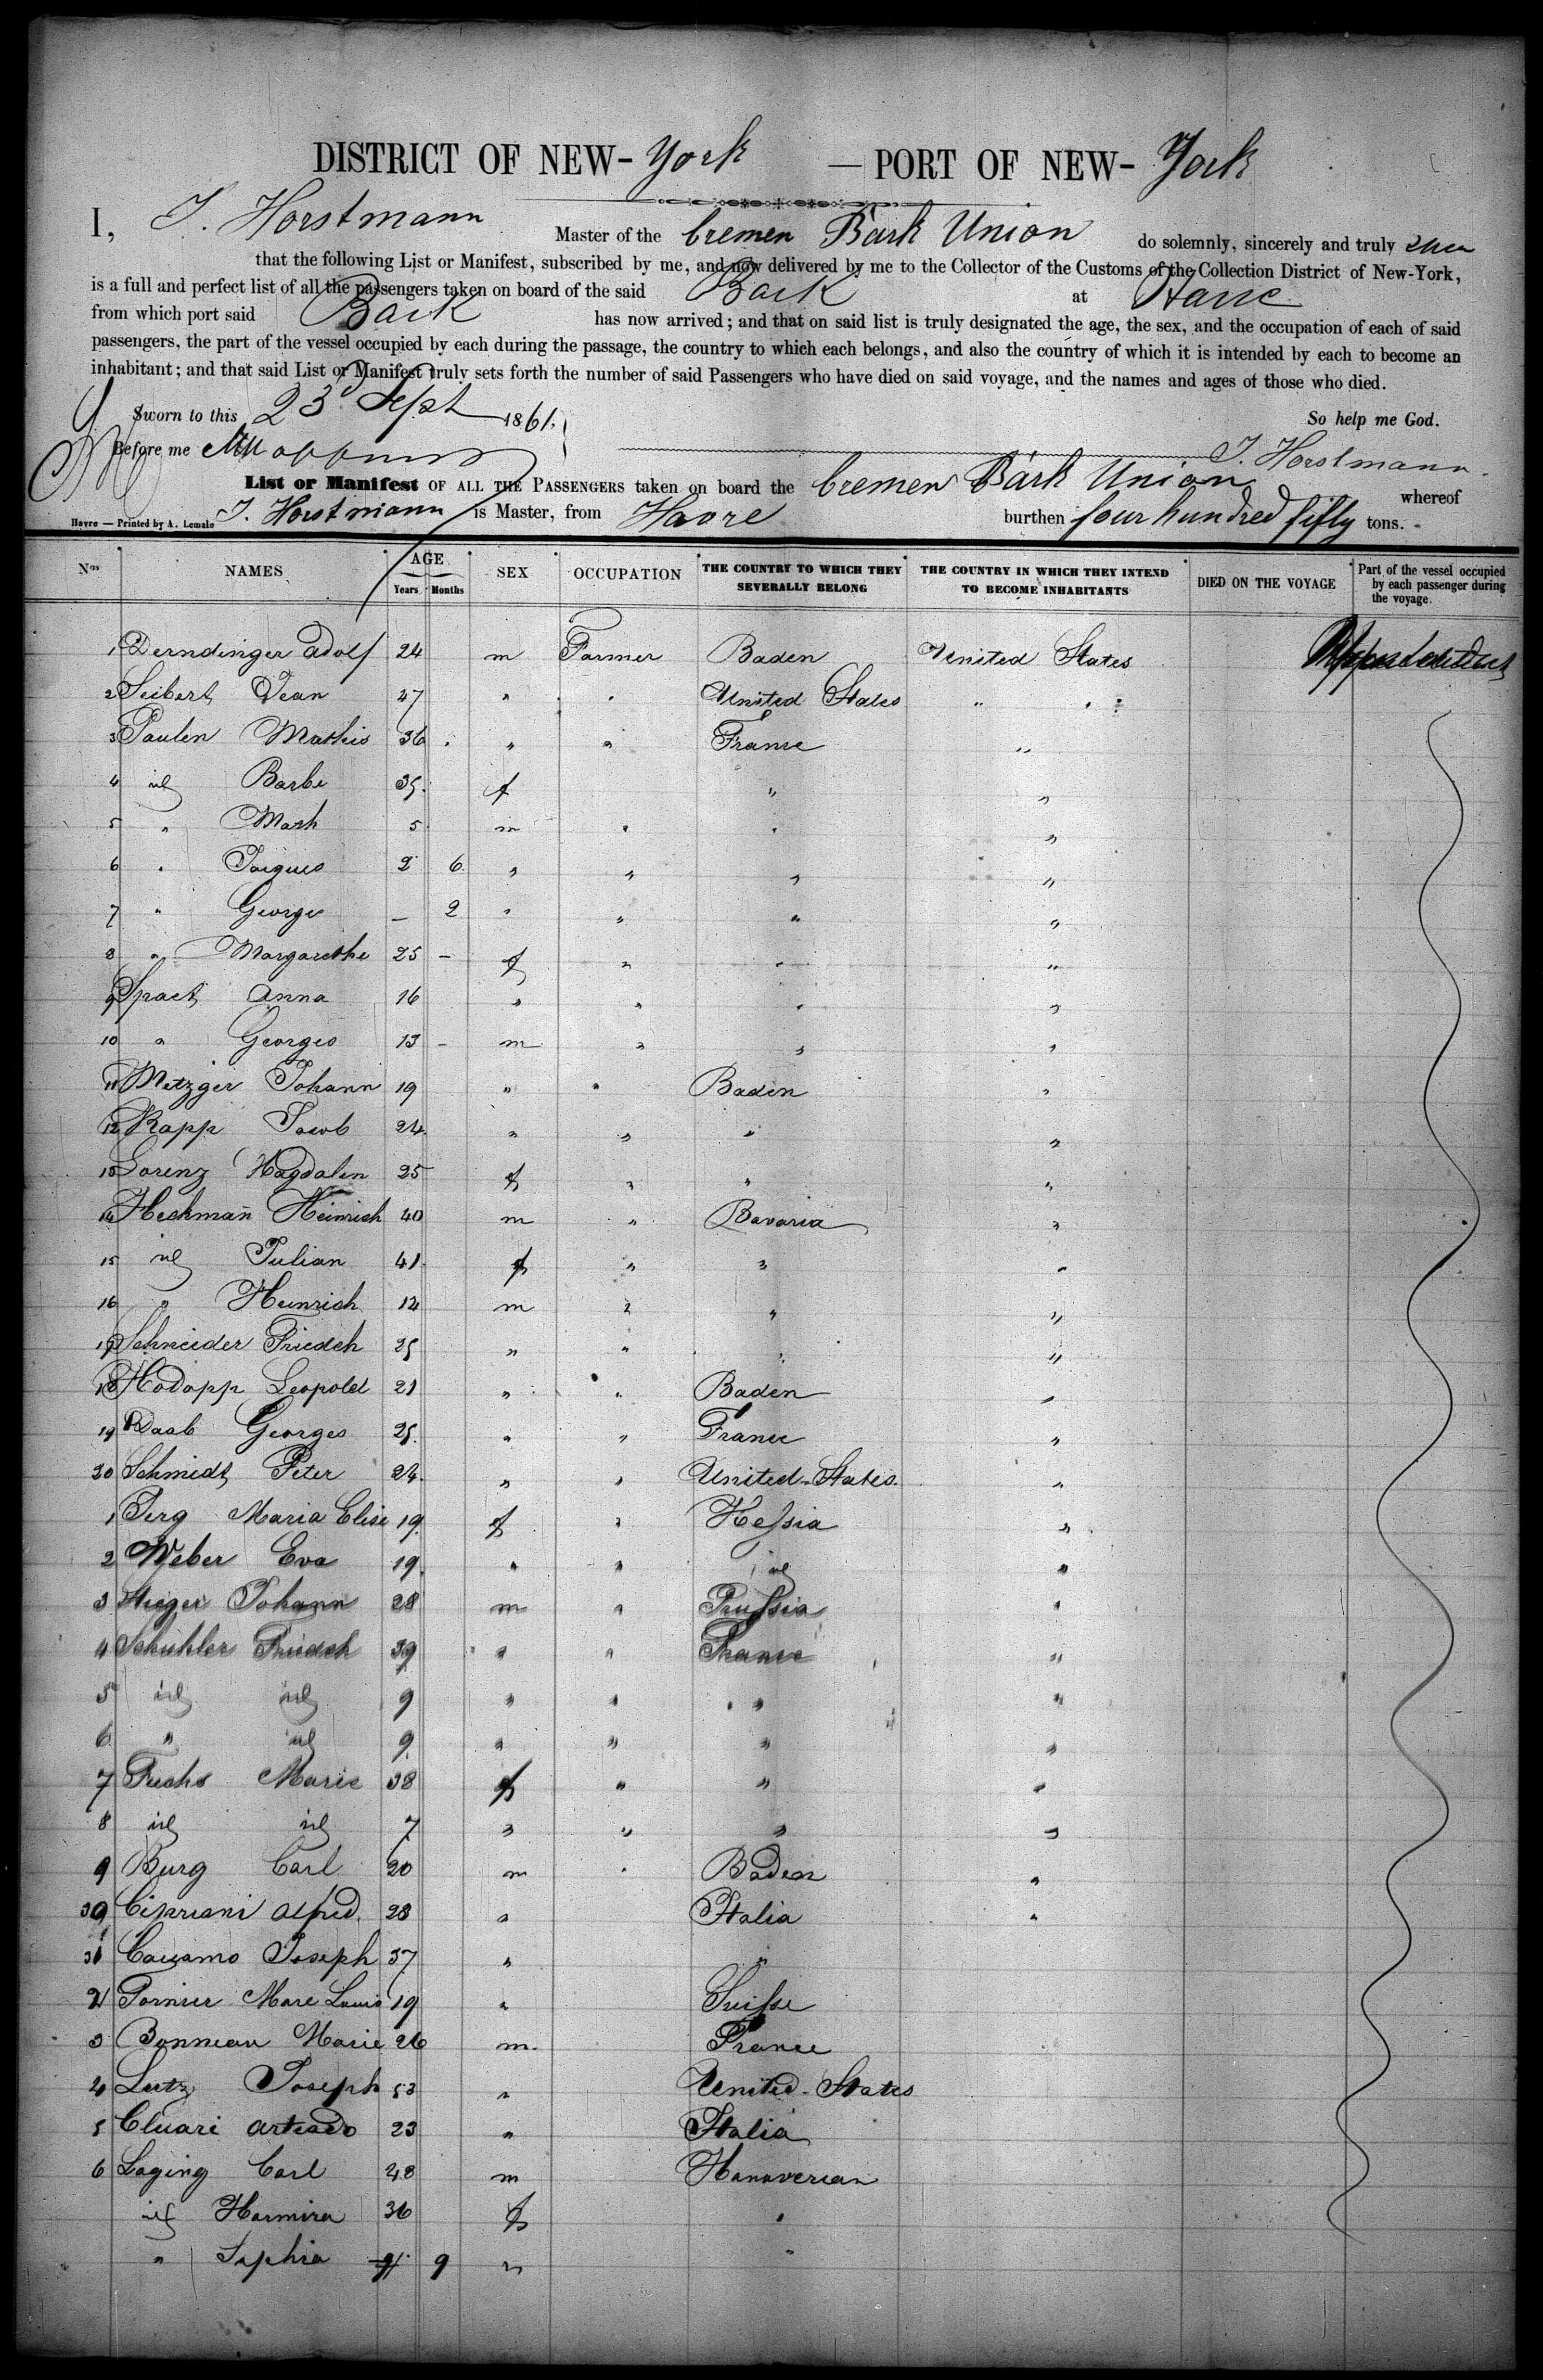 DISTRICT OF NEW- York — PORT OF NEW- York
I, J. Horstmann Master of the bremen Bark Union do solemnly, sincerely and truly
that the following List or Manifest, subscribed by me, and now delivered by me to the Collector of the Customs of the Collection District of New-York,
is a full and perfect list of all the passengers taken on board of the said Bark at Havre
from which port said Bark has now arrived; and that on said list is truly designated the age, the sex, and the occupation of each of said
passengers, the part of the vessel occupied by each during the passage, the country to which each belongs, and also the country of which it is intended by each to become an
inhabitant; and that said List or Manifest truly sets forth the number of said Passengers who have died on said voyage, and the names and ages of those who died.
Sworn to this 23d Sept 1861. So help me God.
Before me
J. Horstmann.
List or Manifest OF ALL THE PASSENGERS taken on board the bremen Bark Union whereof
J. Horstmann is Master, from Havre burthen four hundred fifty tons.
Havre — Printed by A. Lemale
Nos NAMES AGE Years Months SEX OCCUPATION THE COUNTRY TO WHICH THEY SEVERALLY BELONG THE COUNTRY IN WHICH THEY INTEND TO BECOME INHABITANTS DIED ON THE VOYAGE Part of the vessel occupied by each passenger during the voyage.
1 Derndinger Adolf 24 m Farmer Baden United States
2 Seibert Jean 47 " " United States " "
3 Paulen Mathis 36 " " France "
4 id Barbe 35 f " "
5 " Math 5 m " " "
6 " Jacques 2 6 " " " "
7 " George — 2 " " " "
8 " Margarethe 25 — f " " "
9 Spaet Anna 16 " " " "
10 " Georges 13 — m " " "
11 Metzger Johann 19 " " Baden "
12 Rapp Jacob 24 " " " "
13 Lorenz Magdalen 25 f " " "
14 Heckmañ Heinrich 40 m " Bavaria "
15 id Julian 41 f " " "
16 " Heinrich 14 m " " "
17 Schneider Friedch 25 " " " "
18 Hodapp Leopold 21 " " Baden "
19 Daab Georges 25 " " France "
20 Schmidt Peter 24 " " United-States "
1 Jerg Maria Elise 19 f " Hessia "
2 Weber Eva 19 " " id "
3 Johann 28 m " Prussia "
4 Schuhler Friedch 39 " " France "
5 id id 9 " " " "
6 " id 9 " " " "
7 Fuchs Marie 38 f " " "
8 id id 7 " " " "
9 Burg Carl 20 m " Baden "
30 Cipriani Alfred. 23 " Italia "
31 Joseph 37 " "
2 Marc Louis 19 " Suisse
3 Bonneau Marie 26 m. France
4 Lutz Joseph 53 " United-States
5 Cluari 23 " Italia
6 Laging Carl 48 m Hanoverian
id Harmina 36 f "
" Sophia 9 " "